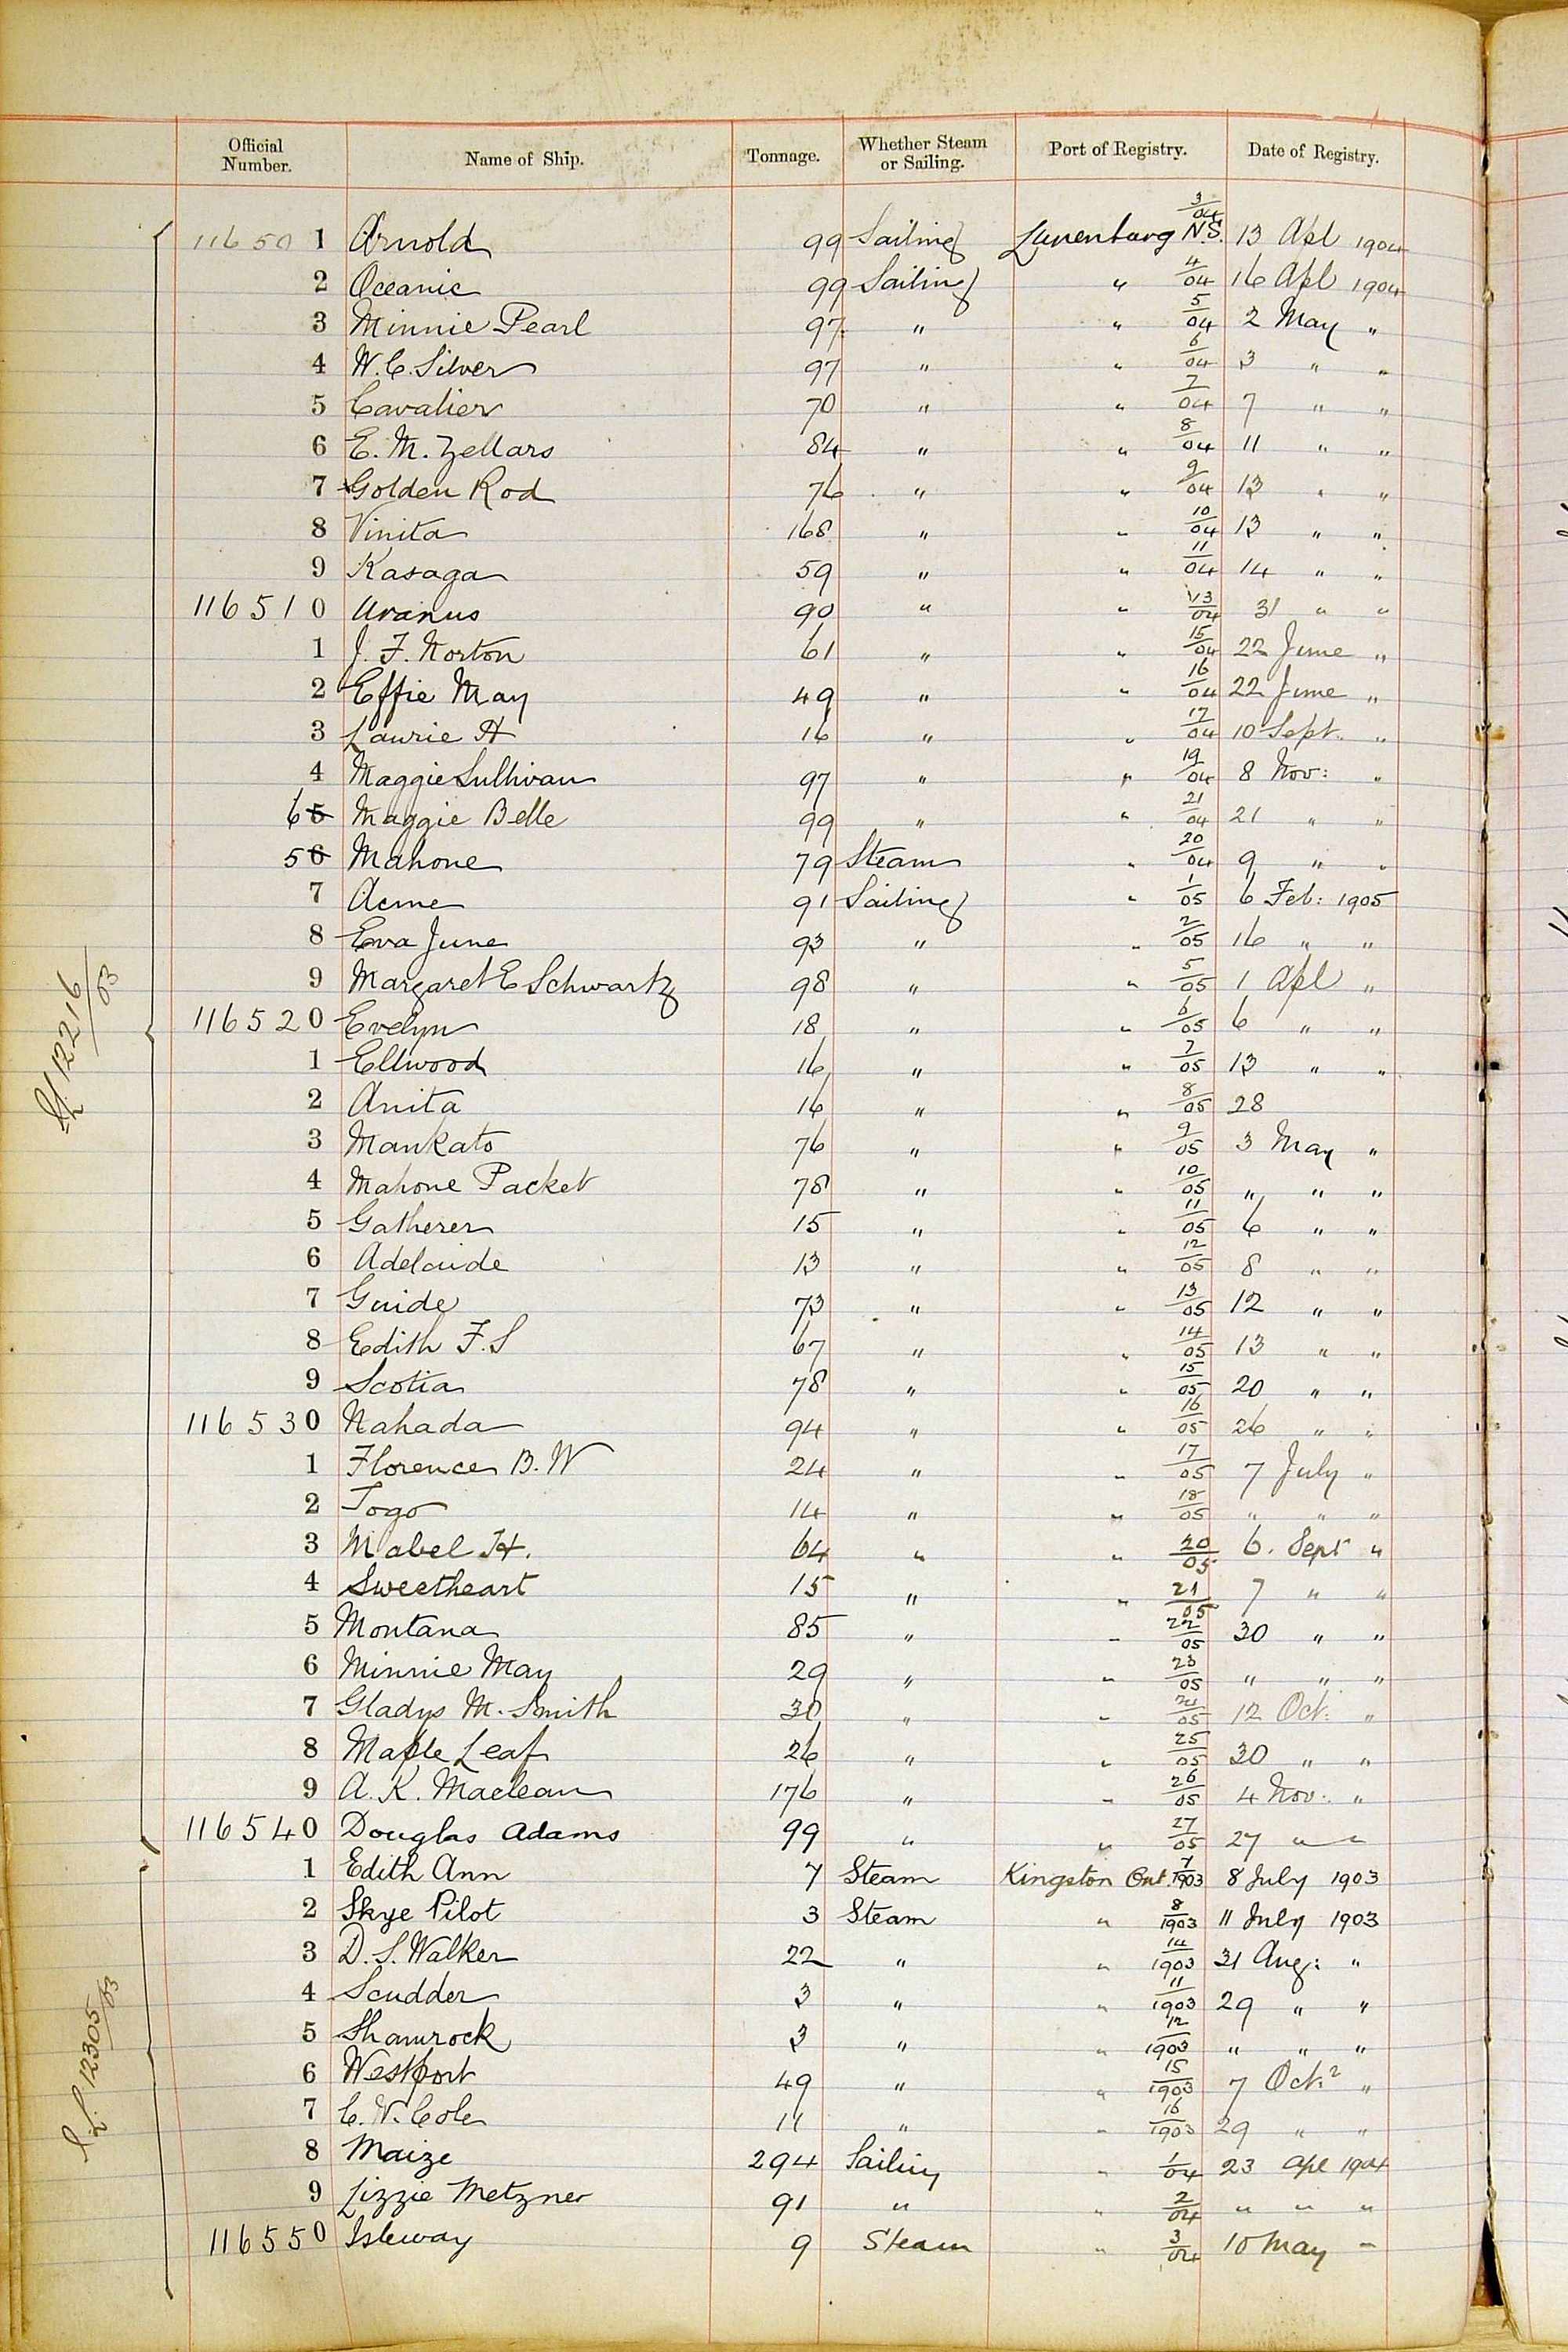 Official Number. Name of Ship. Tonnage. Whether Steam or Sailing. Port of Registry. Date of Registry.
11650 1 Arnold 99 Sailing Lunenburg N.S. 3/04 13 Apl 1904
2 Oceanic 99 Sailing " 4/04 16 Apl 1904
3 Minnie Pearl 97 " " 5/04 2 May "
4 W. C. Silver 97 " " 6/04 3 " "
5 Cavalier 70 " " 7/04 7 " "
6 E. M. Zellars 84 " " 8/04 11 " "
7 Golden Rod 76 " " 9/04 13 " "
8 Vinita 168 " " 10/04 13 " "
9 Kasaga 59 " " 11/04 14 " "
11651 0 Uranus 90 " " 13/04 31 " "
1 J. F. Norton 61 " " 15/04 22 June "
2 Effie May 49 " " 16/04 22 June "
3 Laurie H 16 " " 17/04 10 Sept. "
4 Maggie Sullivan 97 " " 19/04 8 Nov: "
6 5 Maggie Belle 99 " " 21/04 21 " "
5 6 Mahone 79 Steam " 20/04 9 " "
7 Acme 91 Sailing " 1/05 6 Feb: 1905
8 Eva June 93 " " 2/05 16 " "
9 Margaret E Schwartz 98 " " 5/05 1 Apl "
11652 0 Evelyn 18 " " 6/05 6 " "
1 Ellwood 16 " " 7/05 13 " "
2 Anita 16 " " 8/05 28
3 Mankato 76 " " 9/05 3 May "
4 Mahone Packet 78 " " 10/05 " " "
5 Gatherer 15 " " 11/05 6 " "
6 Adelaide 13 " " 12/05 8 " "
7 Guide 73 " " 13/05 12 " "
8 Edith F. S 67 " " 14/05 13 " "
9 Scotia 78 " " 15/05 20 " "
11653 0 Nahada 94 " " 16/05 26 " "
1 Florence B. W 24 " " 17/05 7 July "
2 Togo 14 " " 18/05 " " "
3 Mabel H. 64 " " 20/05 6. Sept "
4 Sweetheart 15 " " 21/05 7 " "
5 Montana 85 " " 22/05 30 " "
6 Minnie May 29 " " 23/05 " " "
7 Gladys M. Smith 30 " " 24/05 12 Oct: "
8 Maple Leaf 26 " " 25/05 30 " "
9 A. K. Maclean 176 " " 26/05 4 Nov: "
11654 0 Douglas Adams 99 " " 27/05 27 " "
1 Edith Ann 7 Steam Kingston Ont. 7/1903 8 July 1903
2 Skye Pilot 3 Steam " 8/1903 11 July 1903
3 D. S. Walker 22 " " 14/1903 31 Aug: "
4 Scudder 3 " " 11/1903 29 " "
5 Shamrock 3 " " 12/1903 " " "
6 Westport 49 " " 15/1903 7 Oct: "
7 C. W. Cole 11 " " 16/1903 29 " "
8 Maize 294 Sailing " 1/04 23 Apl 1904
9 Lizzie Metzner 91 " " 2/04 " " "
11655 0 Isleway 9 Steam " 3/04 10 May "
12216/03
12305/03